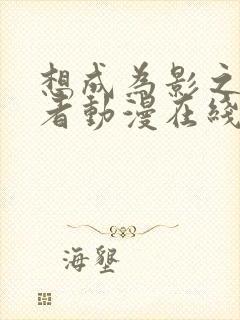 想成為影之
者動漫在綫
海墾